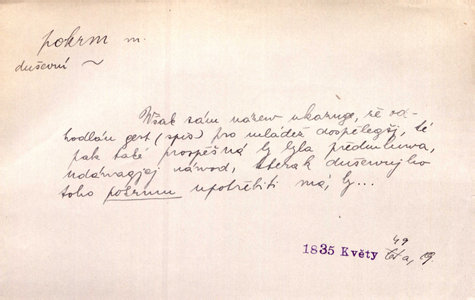 pokrm m.
duševní ~
Však sám název ukazuge, že od-
hodlán gest (spis) pro mládež dospělegší, té
pak také prospěšná by byla předmluva,
udávagjcj návod, kterak duševnjho
toho pokrmu upotřebiti má, by...
49
1835 Květy